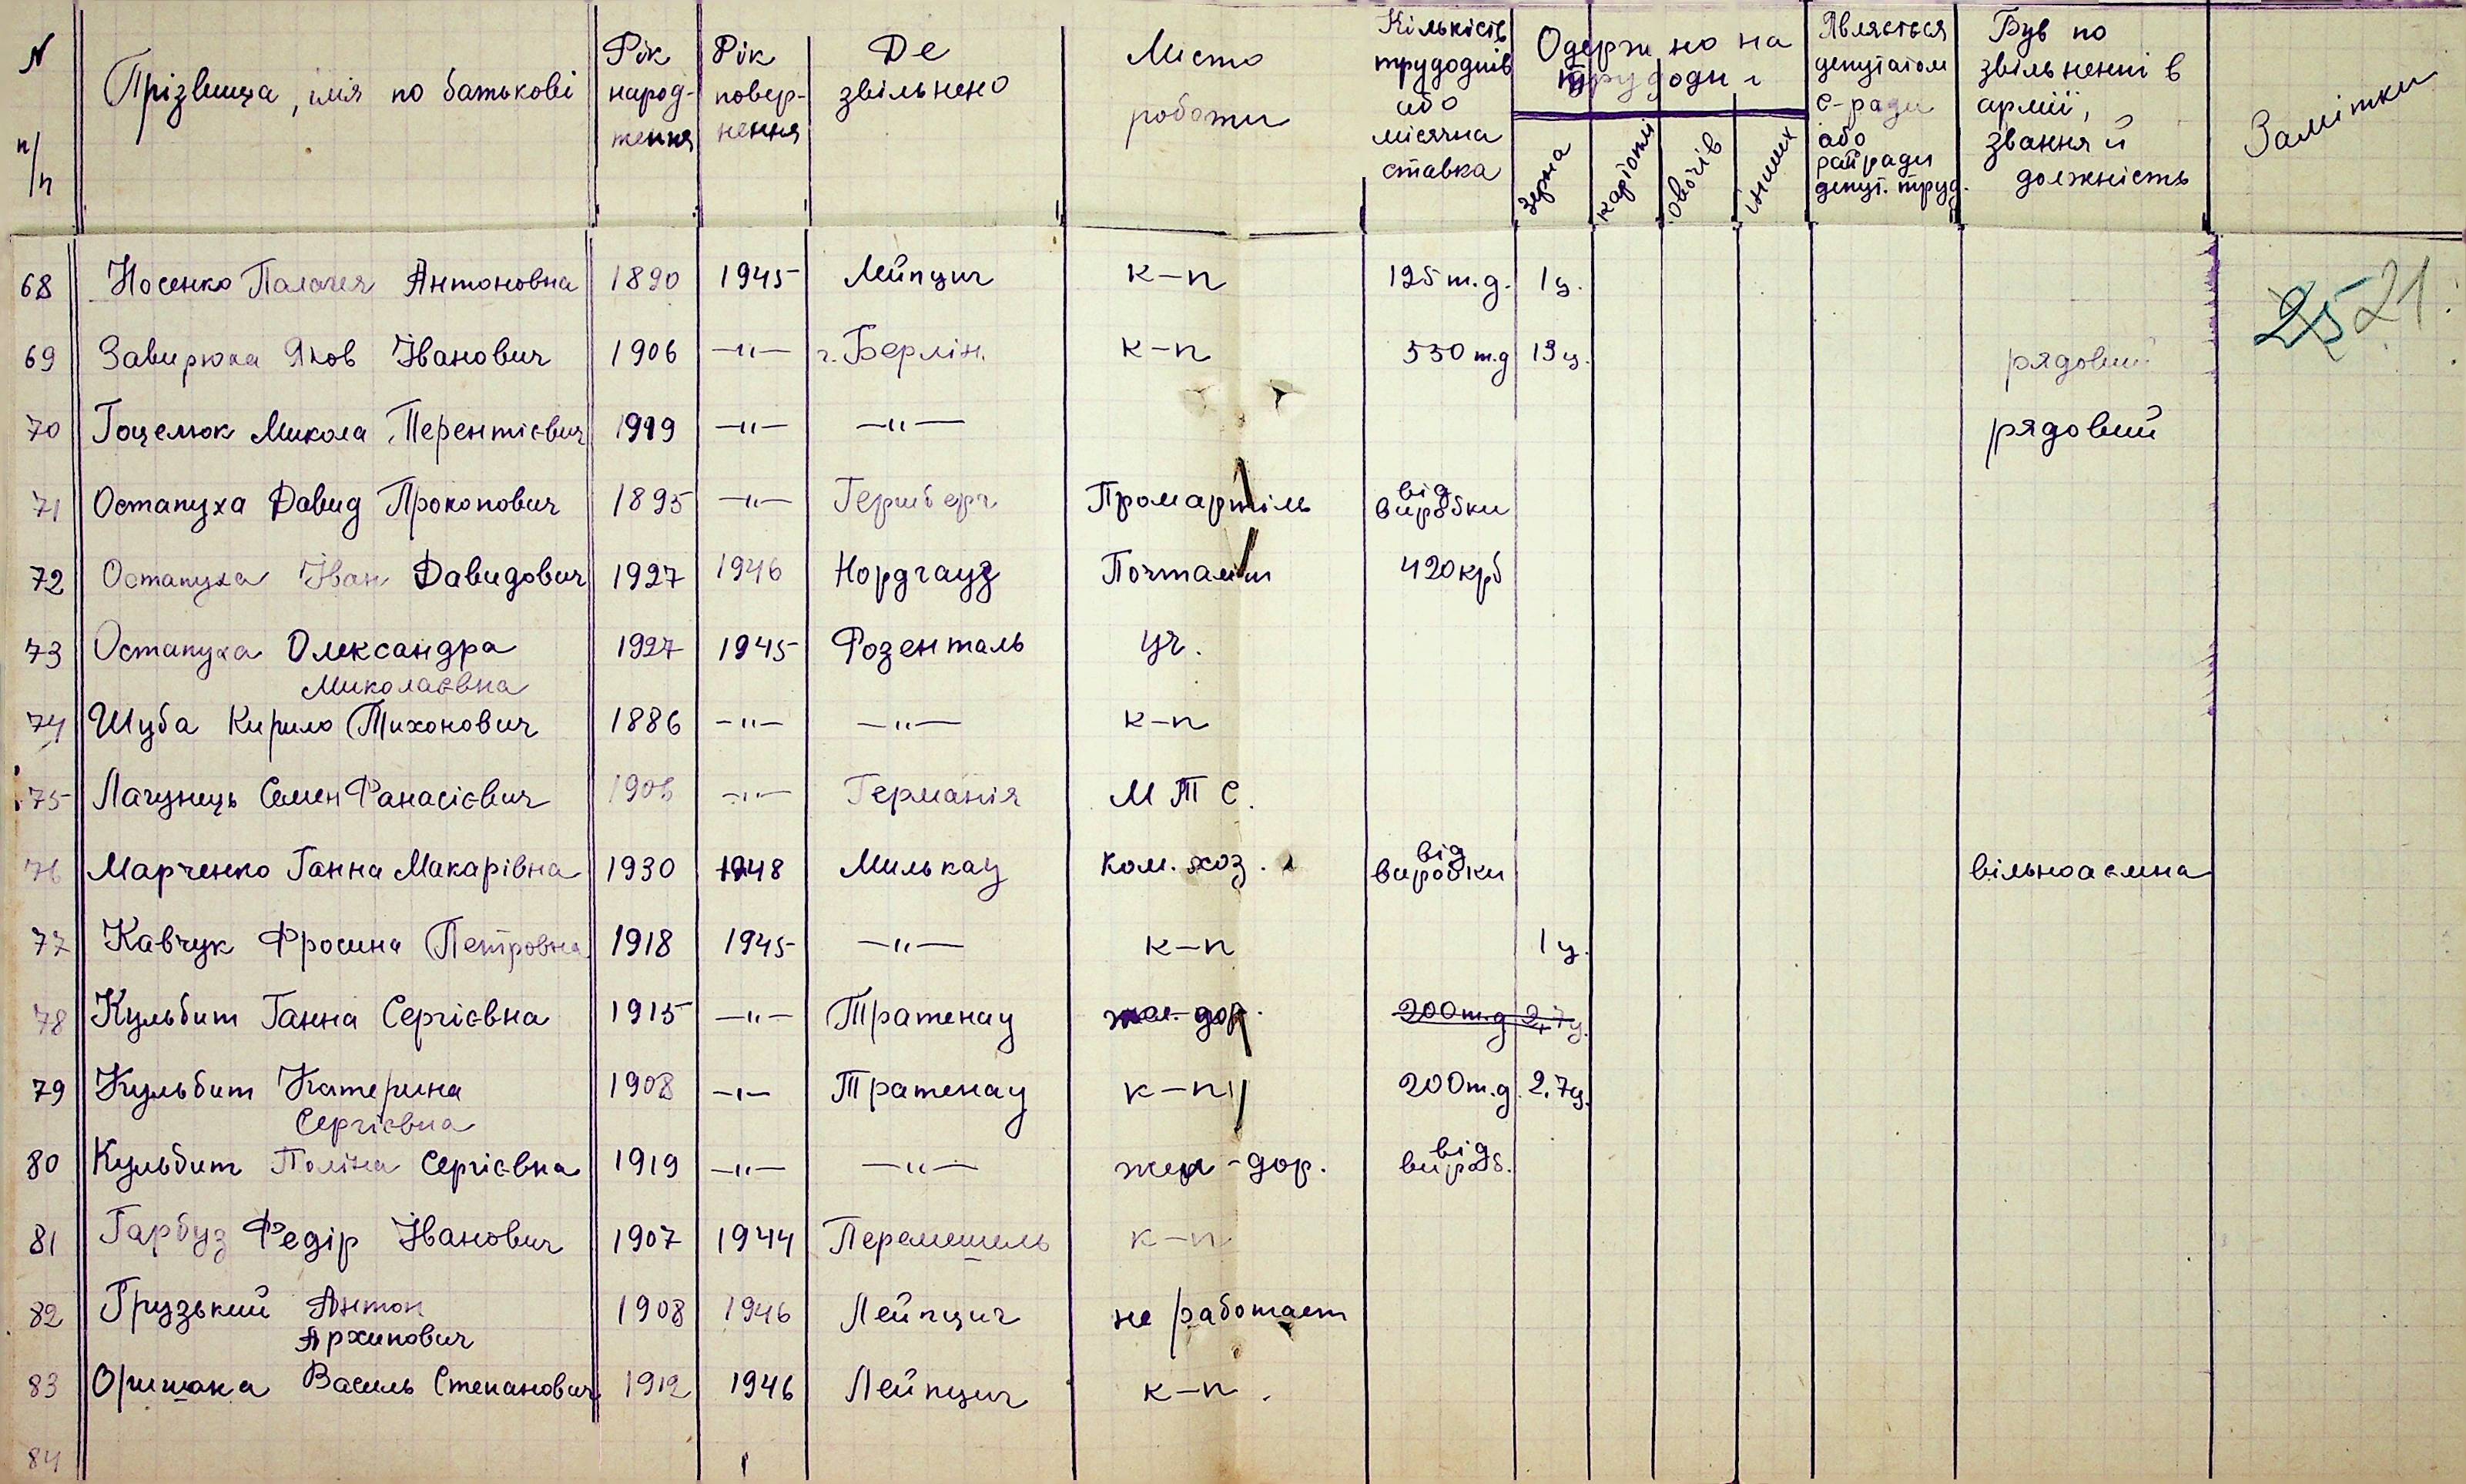 N п/п | Прізвища, імя по батькові | Рік народ-ження | Рік повер-нення | Де звільнено | Місто роботи | Кількість трудоднів або місячна ставка | Одержано на трудодні | зерна | картоплі | овочів | інших | Являється депутатом с-ради або райради депут. труд. | Був по звільненні в армії, звання й должність | Замітки
68 Носенко Палагея Антоновна 1890 1945 Лейпциг к-п 125 т.д. 1 ц. 25 21
69 Завирюха Яков Іванович 1906 —"— г. Берлін. к-п 550 т.д 13 ц. рядовий
70 Гоцелюк Микола Терентієвич 1919 —"— —"— рядовий
71 Остапуха Давид Прокопович 1895 —"— Промартіль від виробки
72 Остапуха Іван Давидович 1927 1946 Нордгауз Почтампт 420 крб
73 Остапуха Олександра 1927 1945 Розенталь уч.
Миколаєвна
74 Шуба Кирило Тихонович 1886 —"— —"— к-п
75 Лагунець Семен Фанасієвич —"— Германія М Т С.
76 Марченко Ганна Макарівна 1930 1948 Милькау Ком. хоз. від виробки вільноаємна
77 Кавчук Фросина Петровна 1918 1945 —"— к-п 1 ц.
78 Кульбит Ганна Сергієвна 1915 —"— Тратенау жел-дор. 200 т.д 2,7 ц.
79 Кульбит Катерина 1908 —"— Тратенау к-п 200 т.д. 2,7 ц.
Сергієвна
80 Кульбит Поліна Сергієвна 1919 —"— —"— жел-дор. від вироб.
81 Гарбуз Федір Іванович 1907 1944 Перемешель к-п
82 Грузький Антон 1908 1946 Лейпциг не работает
Архипович
83 Василь Степанович 1912 1946 Лейпциг к-п.
84